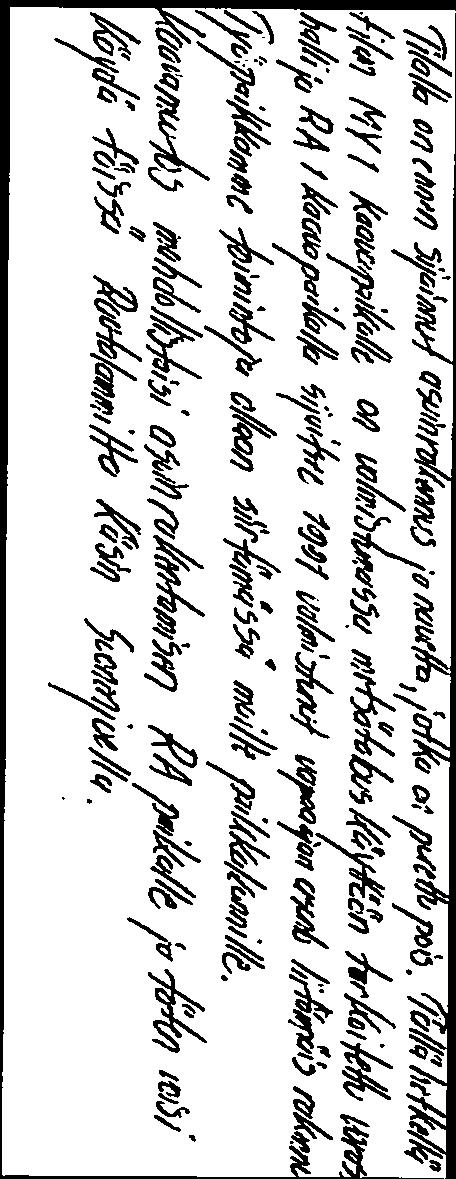 Tilalla on ennen sijainnut asuinrakennus ja navetta, jotka on purettu pois. Tällä hetkellä
tilan MY1 kaavapaikalle on valmistumassa metsätalouskäyttöön tarkoitettu varas
halli ja RA1 kaavapaikalla sijaitsee 1991 valmistunut vapaa-ajan asunto liitännäis rakenn
Työpaikkamme toimintoja ollaan siirtämässä muille paikkakunnille.
Kaavamuutos mahdollistaisi asuinrakentamisen RA paikalle ja täten voisi
käydä töissä Rautalammilta käsin Suonenjoella.